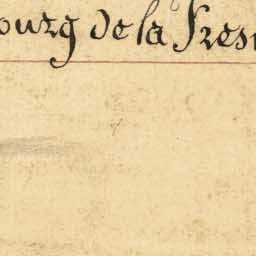 ourg de la Fres